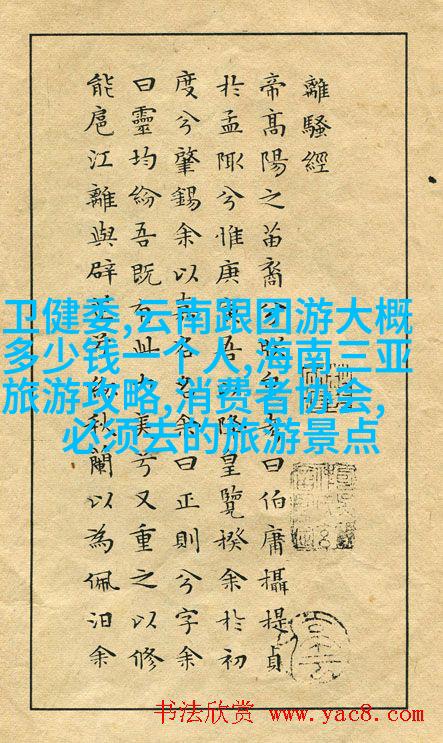 離騷經
帝高陽之苗裔兮朕皇考曰伯庸攝提貞
於孟陬兮惟庚寅吾以降皇覽揆余於初
度兮肇錫余以嘉名名余曰正則兮字余
曰靈均紛吾既有此内美兮又重之以修
能扈江離與辟芷兮紉秋蘭以為佩汨余
卫健委,云南跟团游大概
多少钱一个人,海南三亚
旅游攻略,消费者协会,
必须去的旅游景点
书法欣赏 www.yac8.com